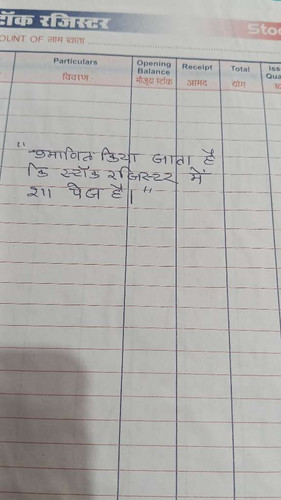 टॉक रजिस्टर Stoc
OUNT OF नाम खाता
Particulars Opening Balance Receipt Total Iss Qua
विवरण मौजूदा स्टॉक आमद योग
"प्रमाणित किया जाता है
कि स्टॉक रजिस्टर में
पेज है।"